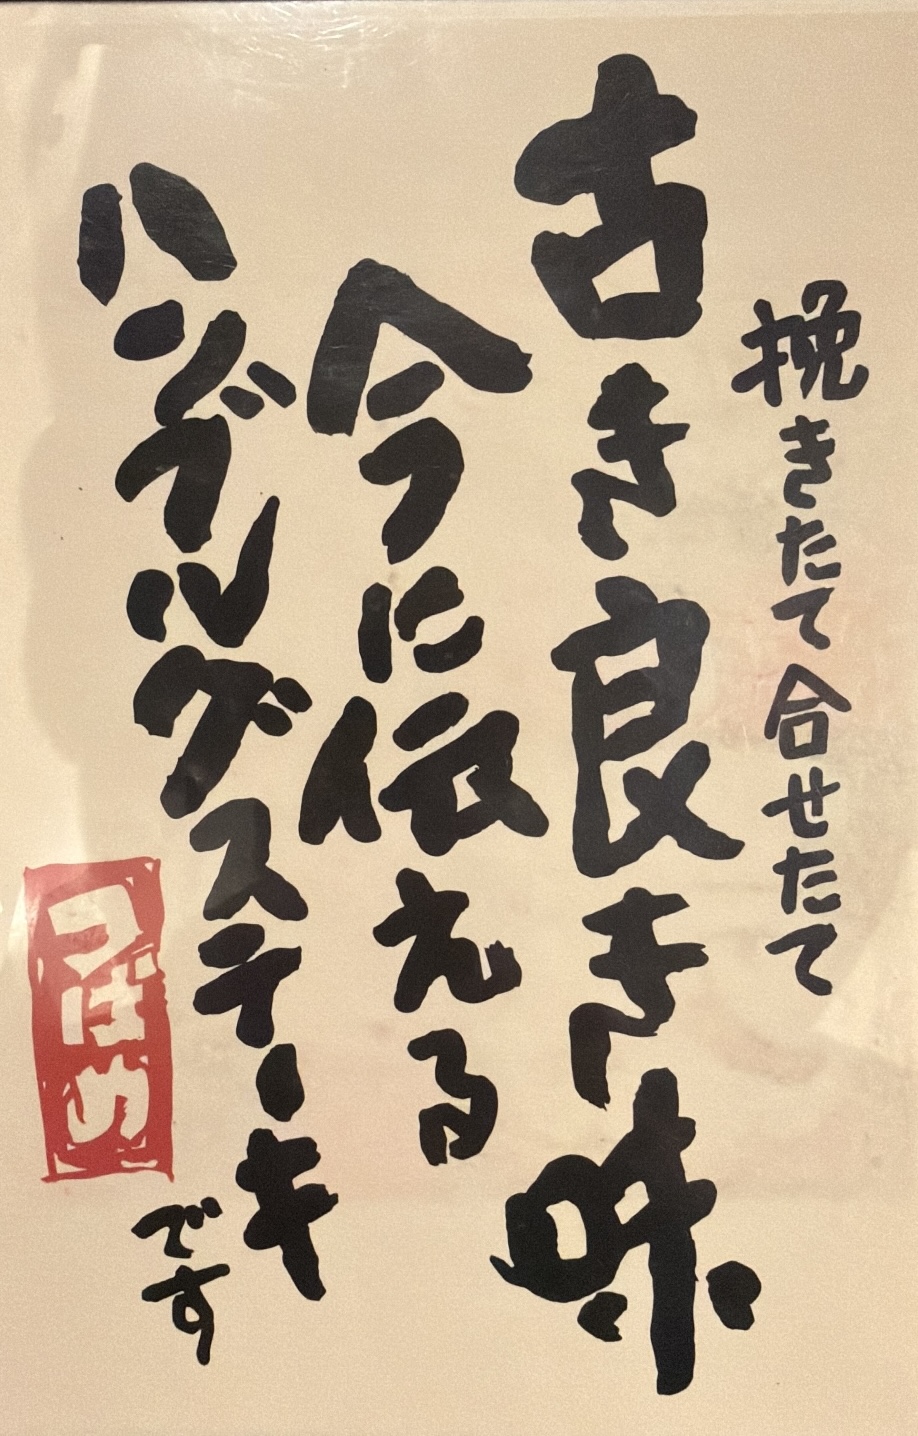 挽きたて合せたて
古き良き味
今に伝える
ハンブルグステーキです
つばめ